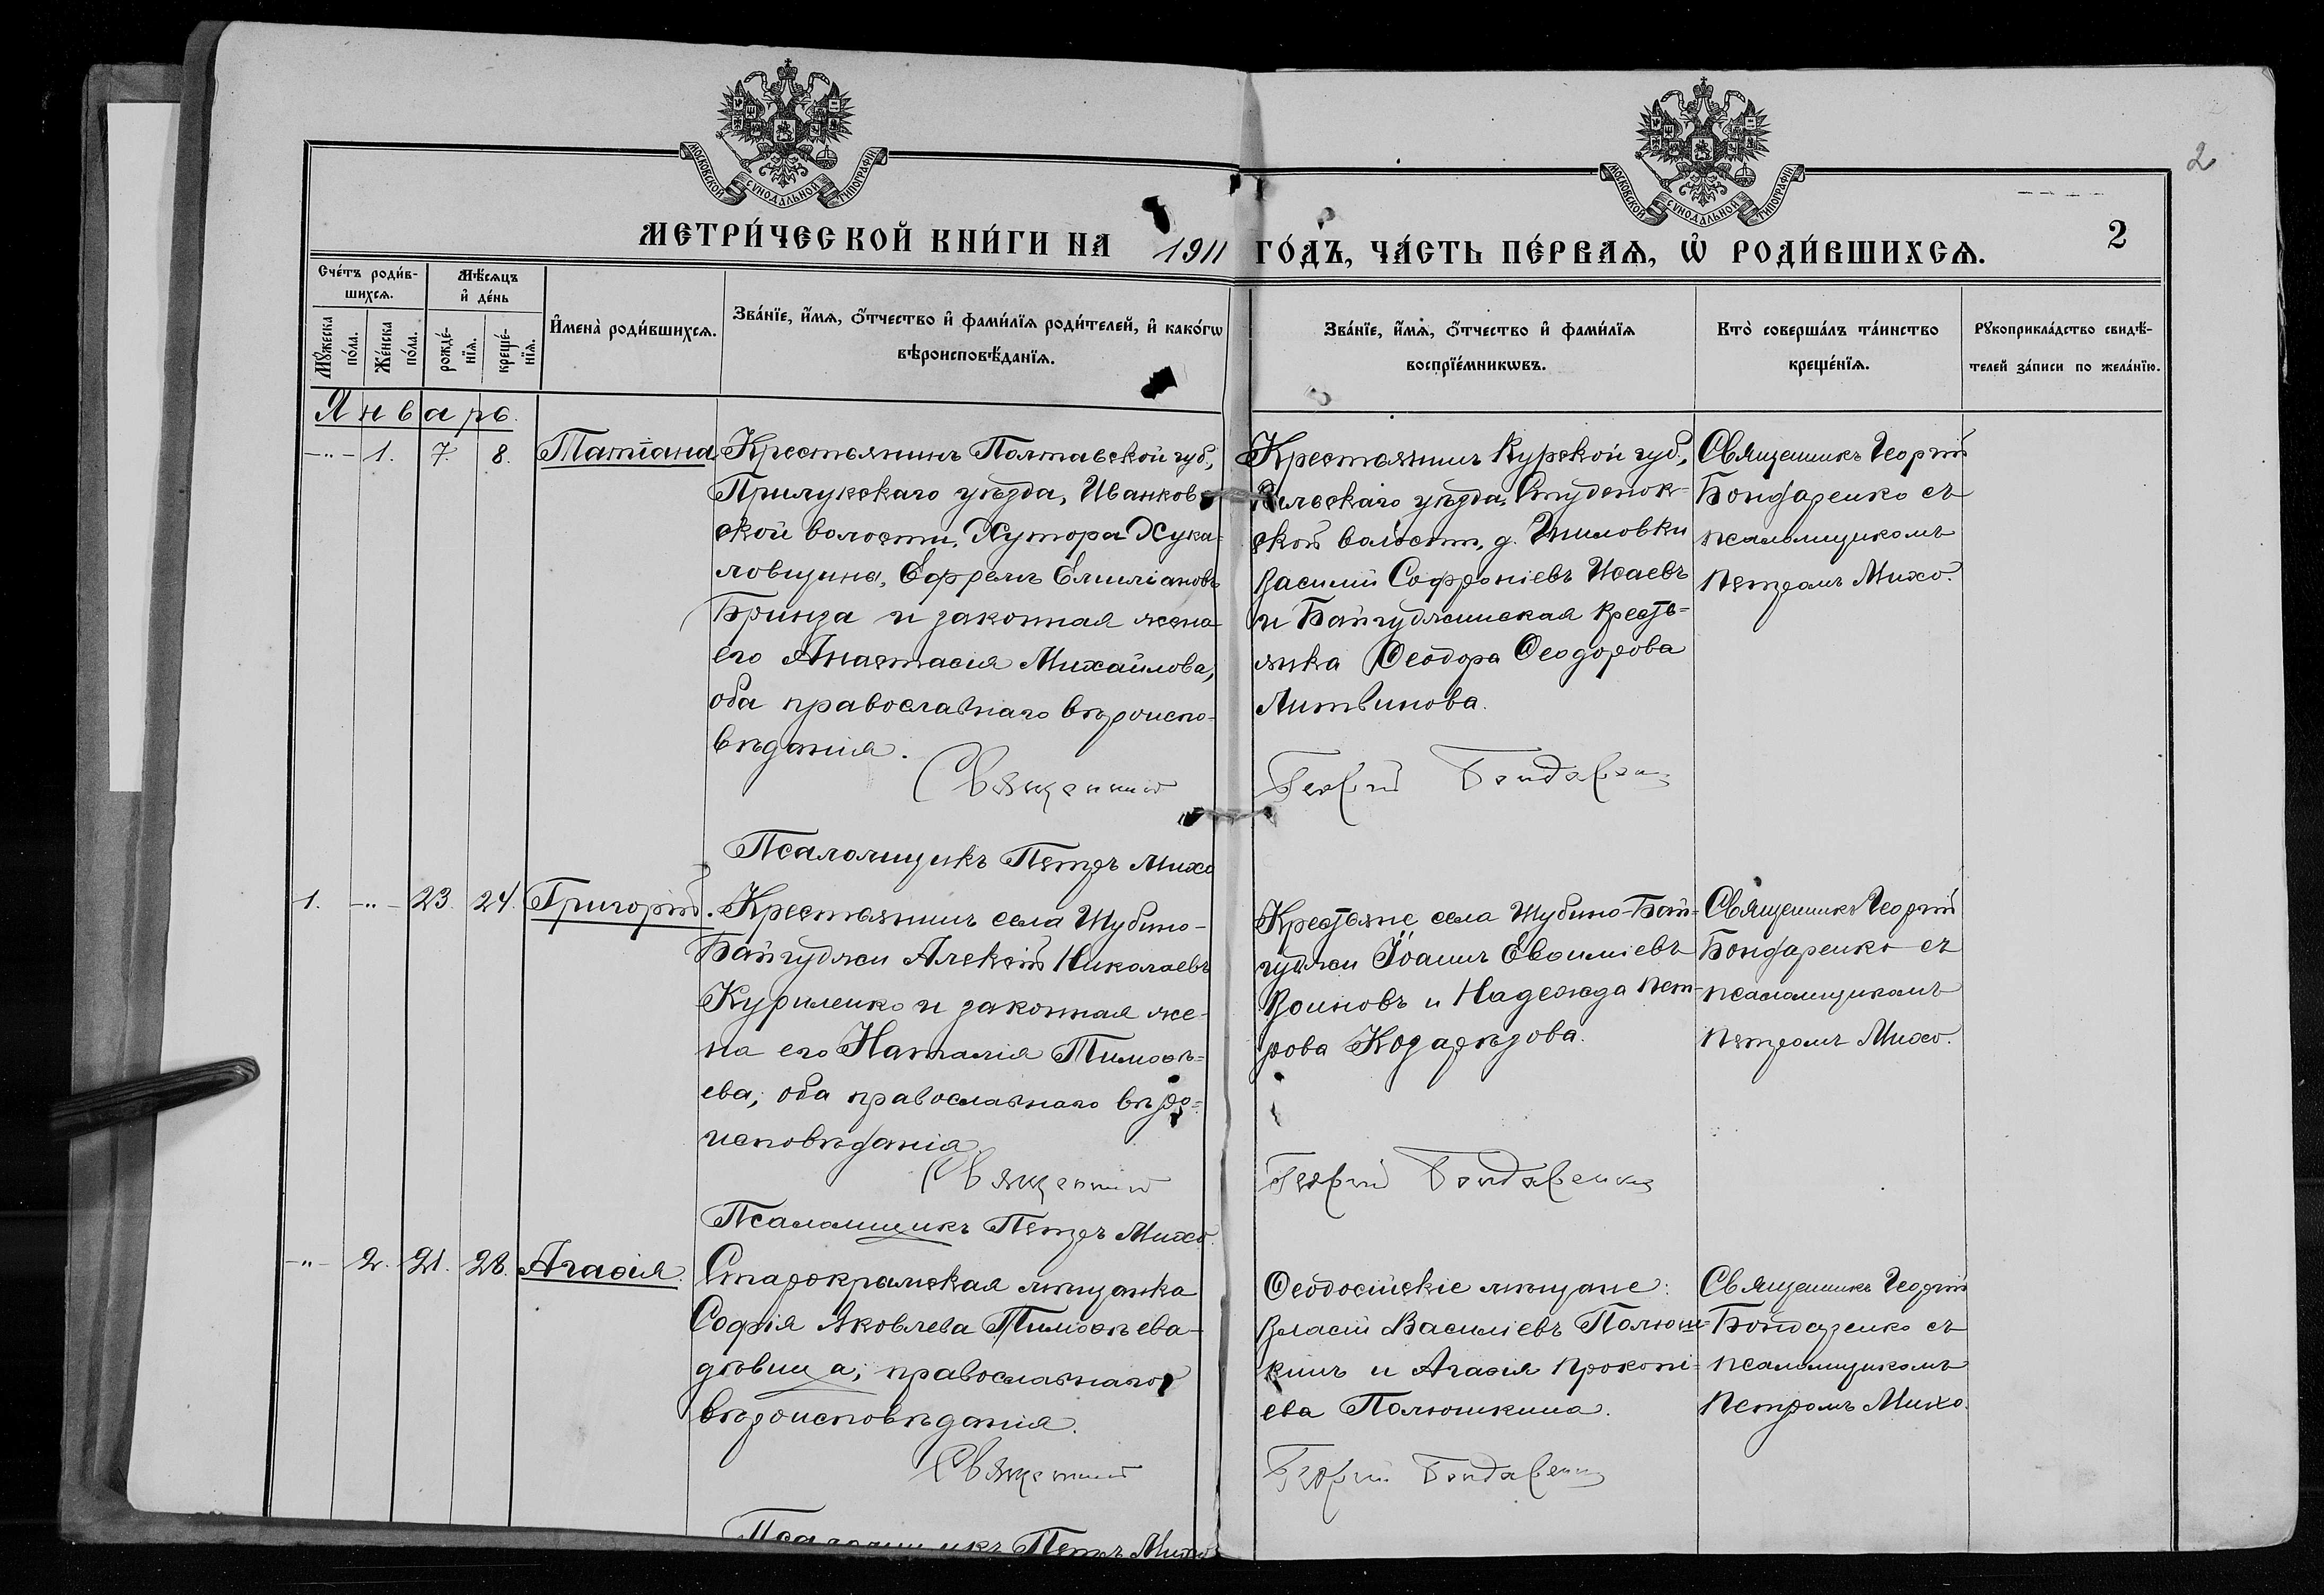 МОСКОВСКОЙ СУНОДАЛЬНОЙ ТИПОГРАФІИ
МОСКОВСКОЙ СУНОДАЛЬНОЙ ТИПОГРАФІИ
2
2
МЕТРИ́ЧЕСКОЙ КНИ́ГИ НА 1911 ГО́ДЪ, ЧА́СТЬ ПЕ́РВАѦ, Ѡ҆ РОДИ́ВШИХСѦ.
Сче́тъ роди́в-
шихсѧ.
Мѣ́сѧцъ
и҆ де́нь
Мꙋ́жеска
по́ла.
Же́нска
по́ла.
рожде́-
нїѧ.
креще́-
нїѧ.
И҆мена̀ роди́вшихсѧ.
Зва́нїе, и҆́мѧ, ѻ҆́тчество и҆ фами́лїѧ роди́телей, и҆ како́гѡ
вѣроисповѣ́данїѧ.
Зва́нїе, и҆́мѧ, ѻ҆́тчество и҆ фами́лїѧ
воспрїе́мникѡвъ.
Кто̀ соверша́лъ та́инство
креще́нїѧ.
Рꙋкоприкла́дство свидѣ́-
телей за́писи по жела́нїю.
Январь.
-"- 1. 7. 8. Татіана
Крестьянинъ Полтавской губ.,
Прилукскаго уѣзда, Иванков-
ской волости, Хутора Хука-
ловщина, Ефремъ Емиліановъ
Бринза и законная жена
его Анастасія Михайлова,
оба православнаго вѣроиспо-
вѣданія.
Священник
Псаломщикъ Петръ Михо
Крестьянинъ Курской губ.,
Рыльскаго уѣзда, Студенок-
ской волости, д.
Василій Софроніевъ Исаевъ
и Байгуджинская кресть-
янка Ѳеодора Ѳеодорова
Литвинова.
Георгий Бондаренко
Священникъ Георгій
Бондаренко съ
псаломщикомъ
Петромъ Михо.
1. -"- 23. 24. Григорій.
Крестьянинъ села Шубино-
Байгуджи Алексѣй Николаевъ
Куриленко и законная же-
на его Наталія Тимоѳѣ-
ева, оба православнаго вѣро-
исповѣданія.
Священник
Псаломщикъ Петръ Михо.
Крестьяне села Шубино-Бай-
гуджи Іоаннъ Евѳиміевъ
Воиновъ и Надежда Пет-
рова Козарѣзова.
Георгий Бондаренко
Священникъ Георгій
Бондаренко съ
псаломщикомъ
Петромъ Михо.
-"- 2. 21. 28. Агаѳія.
Старокрымская мѣщанка
Софія Яковлева Тимоѳѣева-
дѣвица, православнаго
вѣроисповѣданія.
Священник
Псаломщикъ Петръ Михо
Ѳеодосійскіе мѣщане:
Власій Василіевъ Полюш-
кинъ и Агаѳія Прокопі-
ева Полюшкина.
Георгий Бондаренко
Священникъ Георгій
Бондаренко съ
псаломщикомъ
Петромъ Михо.